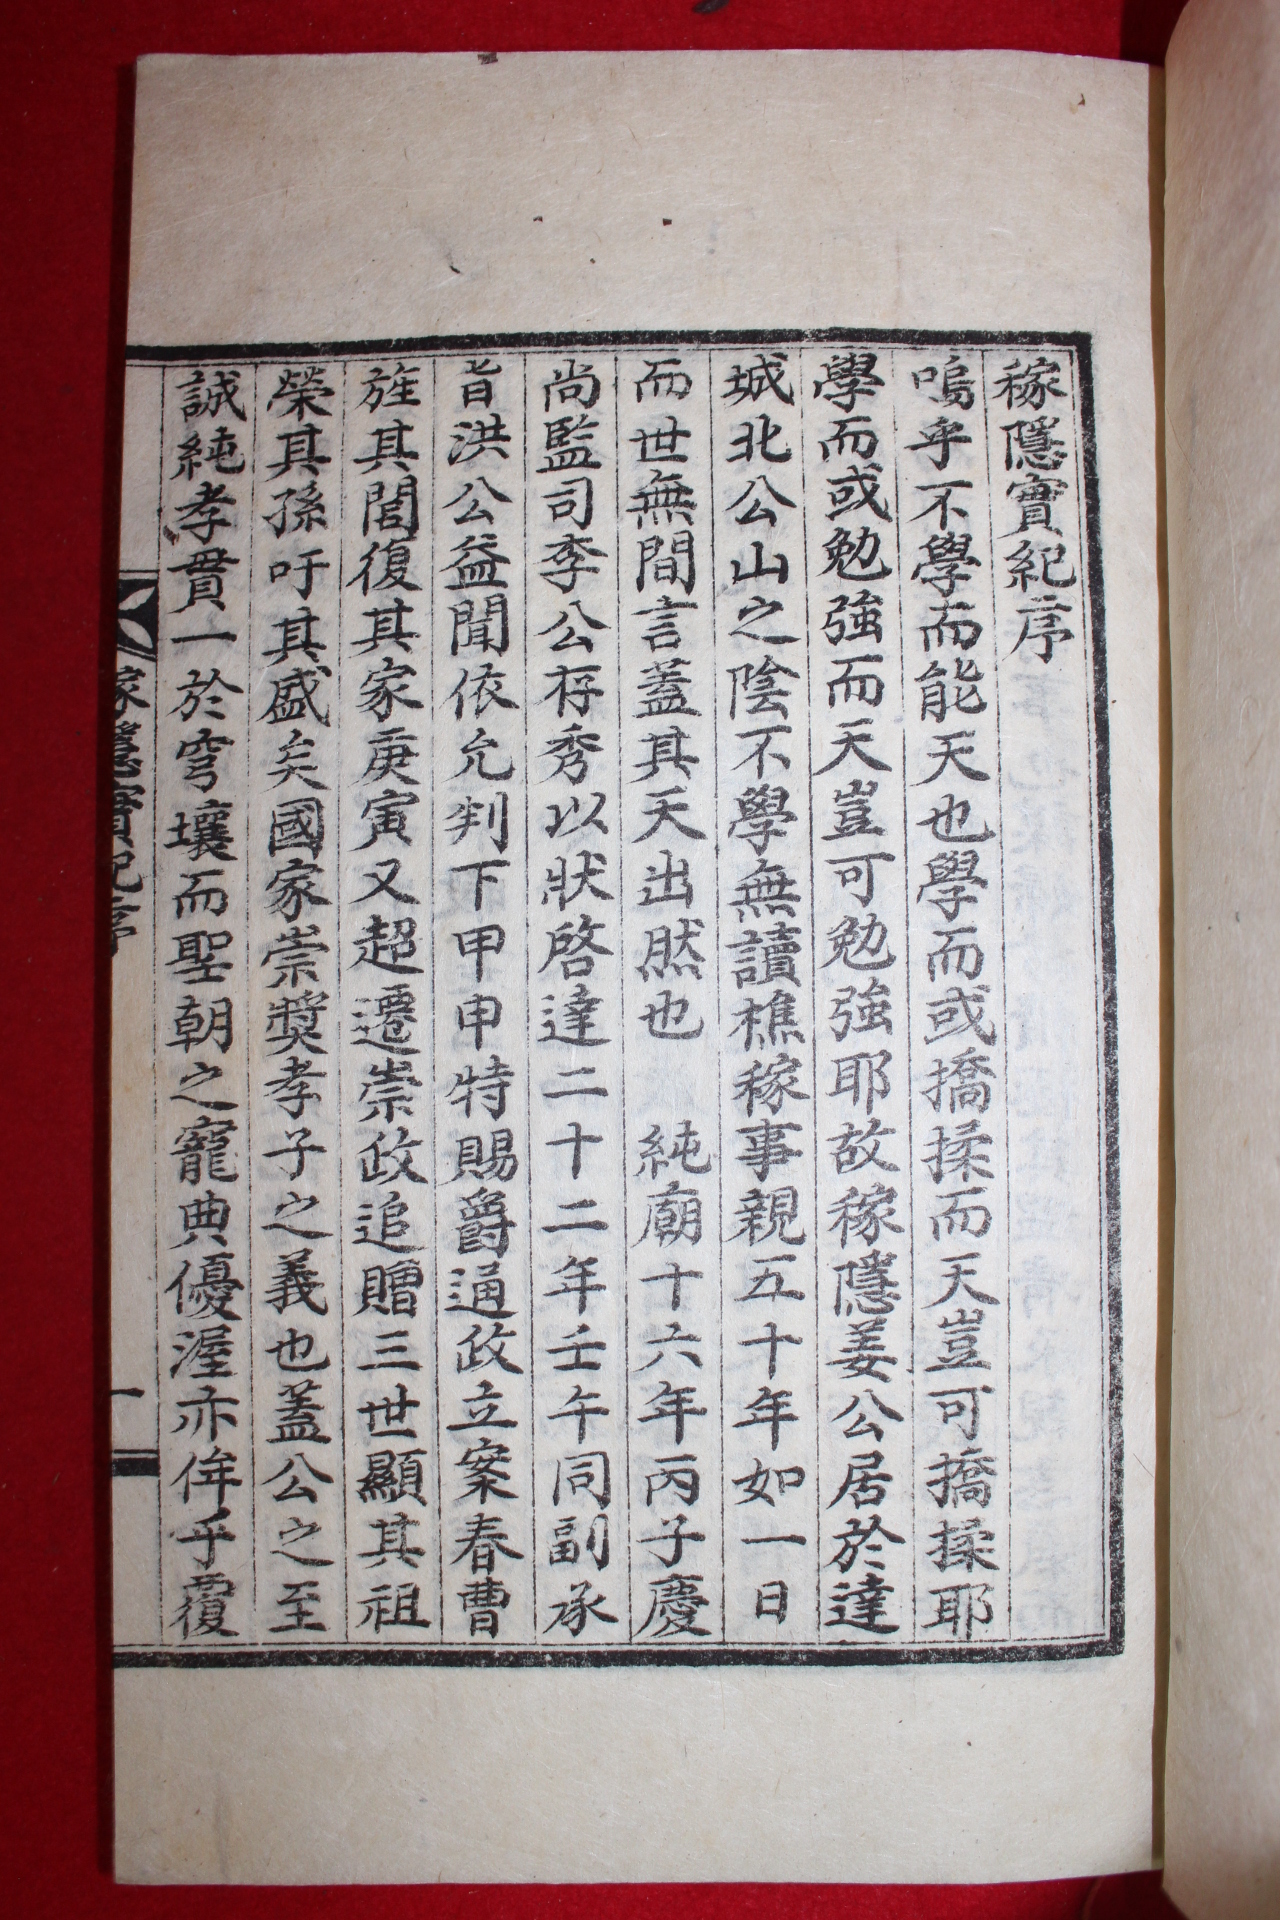 稼隱實紀序
嗚乎不學而能天也學而或撟揉而天豈可撟揉耶
學而或勉強而天豈可勉強耶故稼隱姜公居於達
城北公山之陰不學無讀樵稼事親五十年如一日
而世無間言蓋其天出然也 純廟十六年丙子慶
尚監司李公存秀以狀啓達二十二年壬午同副承
旨洪公益聞依允判下甲申特賜爵通政立案春曹
旌其閭復其家庚寅又超遷崇政追贈三世顯其祖
榮其孫吁其盛矣國家崇獎孝子之義也蓋公之至
誠純孝貫一於穹壤而聖朝之寵典優渥亦侔乎覆
稼隱實紀序
一